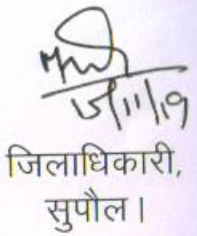 15/11/19
जिलाधिकारी,
सुपौल।